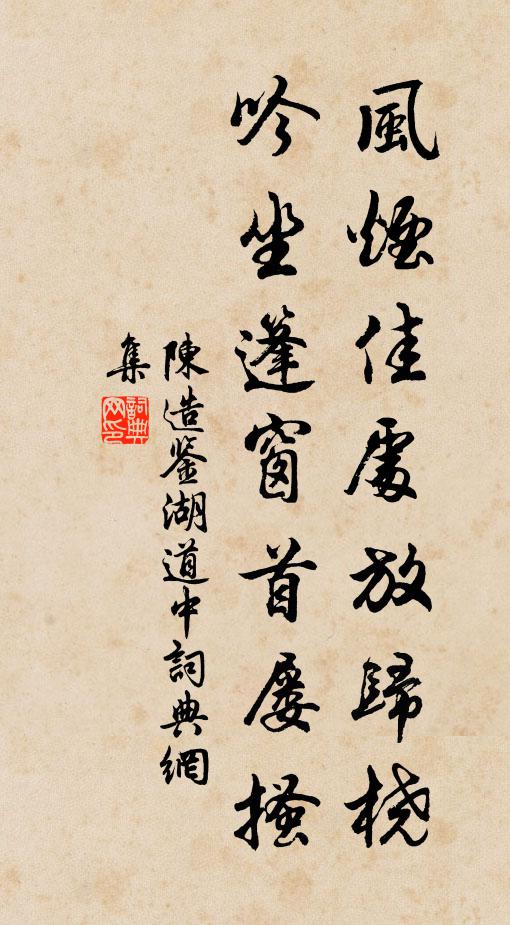 風煙佳處放歸橈
吟坐蓬窗首屢搔
陳造鑒湖道中詞典網
集
詞典網印